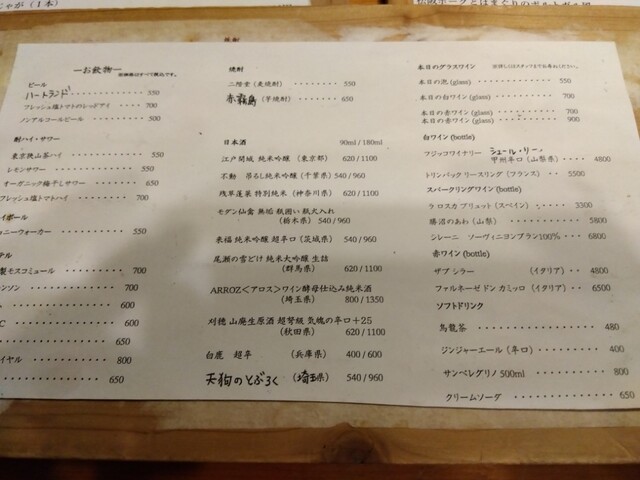 じゃが（1本）
ーお飲物ー
ビール
ハートランド 550
フレッシュ塩トマトのレッドアイ 700
ノンアルコールビール 500
酎ハイ・サワー
東京狭山茶ハイ 550
レモンサワー 550
オーガニック梅干しサワー 650
フレッシュ塩トマトハイ 700
イボール
ニーウォーカー 550
テル
製モスコミュール 700
ンソン 700
600
C 600
650
イヤル 800
650
焼酎
二階堂（麦焼酎） 550
赤霧島（芋焼酎） 650
日本酒 90ml / 180ml
江戸開城 純米吟醸（東京都） 620 / 1100
不動 吊るし純米吟醸（千葉県） 540 / 960
残草蓬莱 特別純米（神奈川県） 620 / 1100
モダン仙禽 無垢 瓶囲い 瓶火入れ
（栃木県） 540 / 960
来福 純米吟醸 超辛口（茨城県） 540 / 960
尾瀬の雪どけ 純米大吟醸 生詰
（群馬県） 620 / 1100
ARROZ＜アロス＞ワイン酵母仕込み純米酒
（埼玉県） 800 / 1350
刈穂 山廃生原酒 超弩級 気魄の辛口＋25
（秋田県） 620 / 1100
白鹿 超辛（兵庫県） 400 / 600
天狗のどぶろく（埼玉県） 540 / 960
本日のグラスワイン
本日の泡 (glass) 550
本日の白ワイン (glass) 700
本日の赤ワイン (glass) 700
本日の赤ワイン (glass) 900
白ワイン (bottle)
フジッコワイナリー シュール・リー
甲州辛口（山梨県） 4800
トリンバック リースリング（フランス） 5500
スパークリングワイン (bottle)
ラ ロスカ ブリュット（スペイン） 3300
勝沼のあわ（山梨） 5800
シレーニ ソーヴィニヨンブラン100% 6800
赤ワイン (bottle)
ザブ シラー （イタリア） 4800
ファルネーゼ ドン カミッロ （イタリア） 6500
ソフトドリンク
烏龍茶 400
ジンジャーエール（辛口） 400
サンペレグリノ 500ml 800
クリームソーダ 650